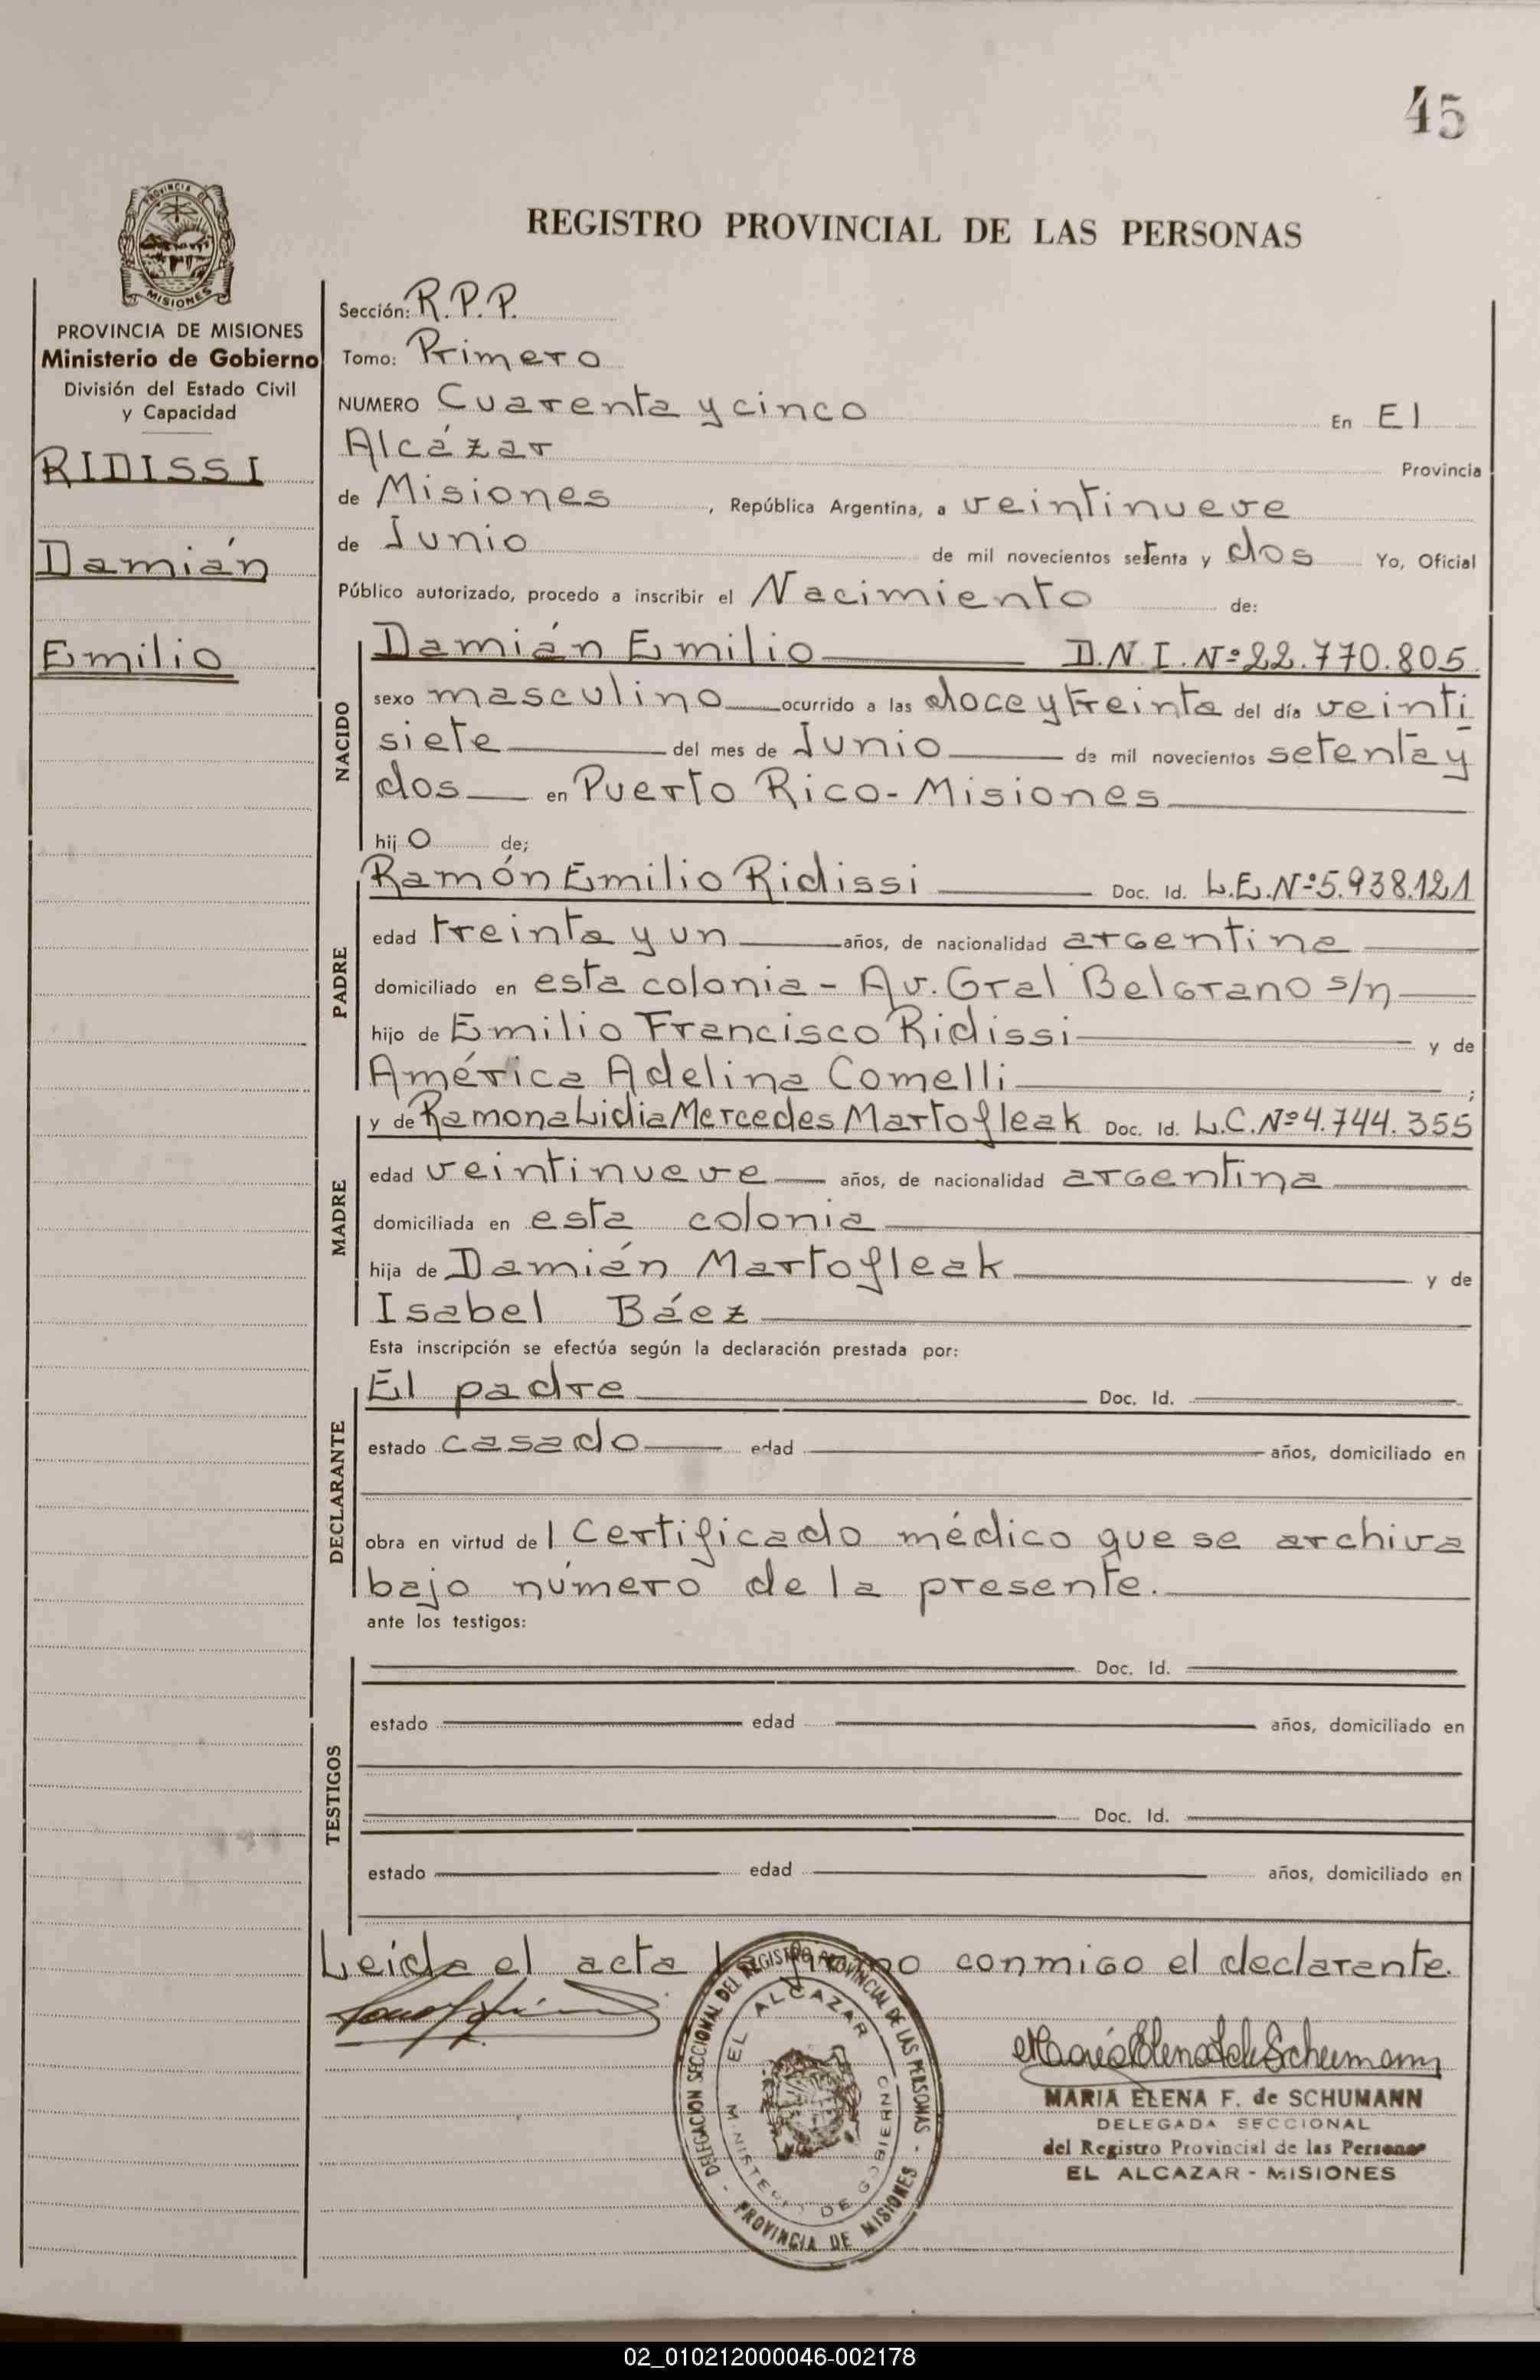 45
PROVINCIA DE
MISIONES
PROVINCIA DE MISIONES
Ministerio de Gobierno
División del Estado Civil
y Capacidad
RIDISSI
Damián
Emilio
REGISTRO PROVINCIAL DE LAS PERSONAS
Sección: R.P.P.
Tomo: Primero
NUMERO Cuarenta y cinco En El
Alcázar Provincia
de Misiones, República Argentina, a veintinueve
de Junio de mil novecientos setenta y dos Yo, Oficial
Público autorizado, procedo a inscribir el Nacimiento de:
NACIDO
Damián Emilio D.N.I. Nº 22.770.805
sexo masculino ocurrido a las doce y treinta del día veinti
siete del mes de Junio de mil novecientos setenta y
dos en Puerto Rico - Misiones
hijo de;
PADRE
Ramón Emilio Ridissi Doc. Id. L.E. Nº 5.938.121
edad treinta y un años, de nacionalidad argentina
domiciliado en esta colonia - Av. Gral Belgrano s/n
hijo de Emilio Francisco Ridissi y de
América Adelina Comelli ;
MADRE
y de Ramona Lidia Mercedes Martofleak Doc. Id. L.C. Nº 4.744.355
edad veintinueve años, de nacionalidad argentina
domiciliada en esta colonia
hija de Damián Martofleak y de
Isabel Báez
Esta inscripción se efectúa según la declaración prestada por:
DECLARANTE
El padre Doc. Id.
estado casado edad años, domiciliado en
obra en virtud de l Certificado médico que se archiva
bajo número de la presente.
ante los testigos:
TESTIGOS
Doc. Id.
estado edad años, domiciliado en
Doc. Id.
estado edad años, domiciliado en
Leída el acta la firmo conmigo el declarante.
DELEGACION SECCIONAL DEL REGISTRO PROVINCIAL DE LAS PERSONAS - PROVINCIA DE MISIONES -
EL ALCAZAR
MINISTERIO DE GOBIERNO
María Elena F. de Schumann
MARIA ELENA F. de SCHUMANN
DELEGADA SECCIONAL
del Registro Provincial de las Personas
EL ALCAZAR - MISIONES
02_010212000046-002178